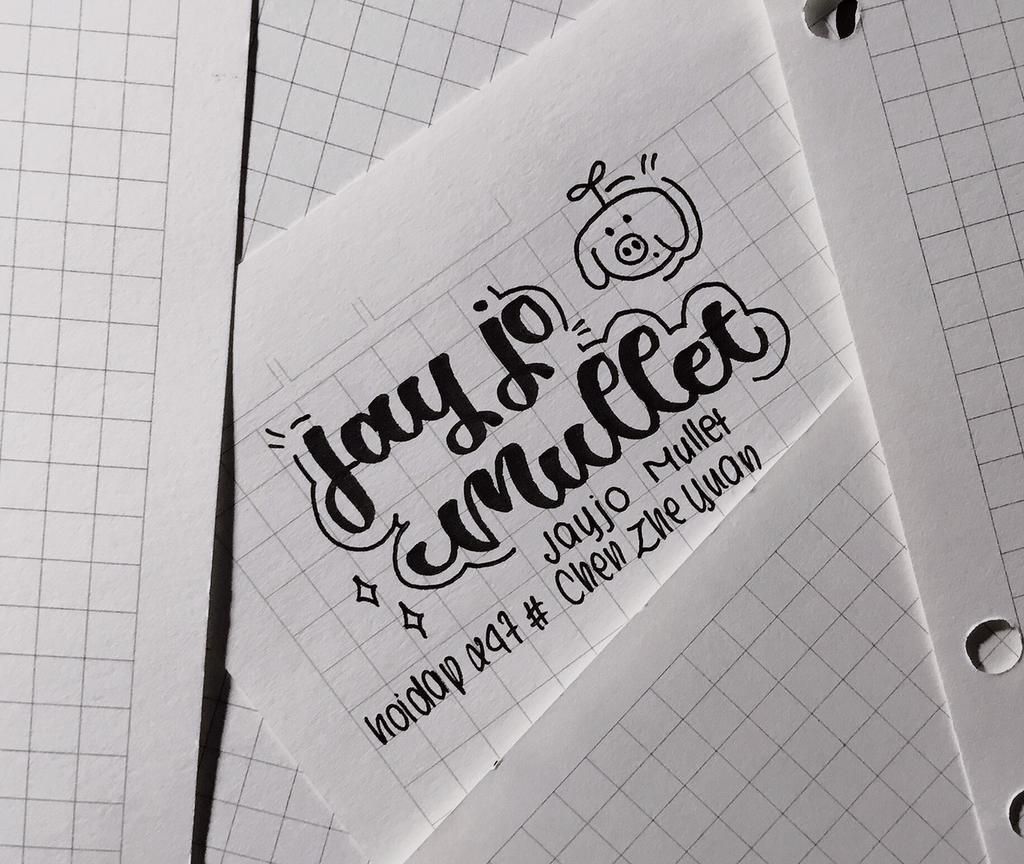 jay jo
Mullet
Jayjo Mullet
Chen Zhe Yuan
hoidap 247 #